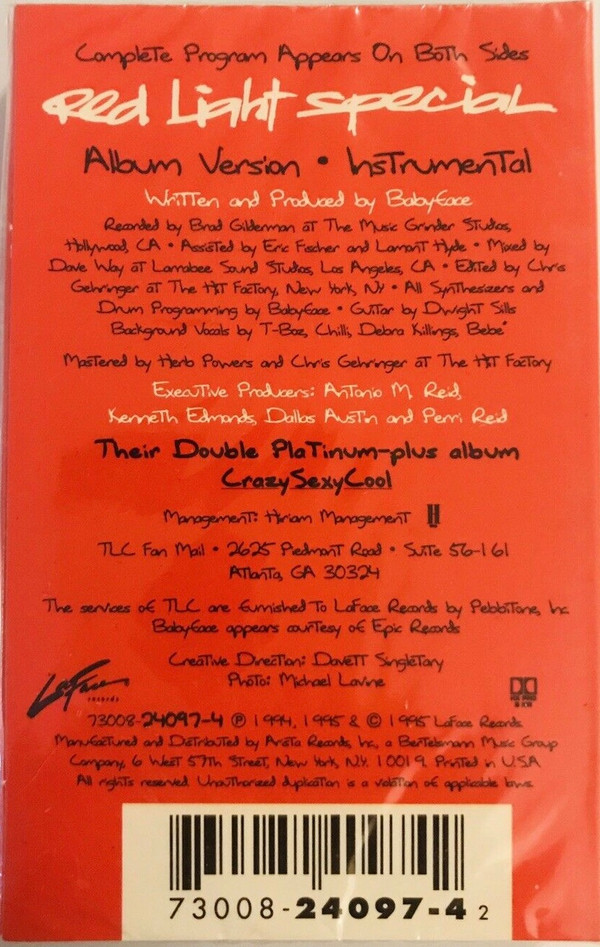 Complete Program Appears On Both Sides
Red Light Special
Album Version • Instrumental
Written and Produced by Babyface
Recorded by Brad Gilderman at The Music Grinder Studios,
Hollywood, CA • Assisted by Eric Fischer and Lamont Hyde • Mixed by
Dave Way at Larrabee Sound Studios, Los Angeles, CA • Edited by Chris
Gehringer at The Hit Factory, New York, NY • All Synthesizers and
Drum Programming by Babyface • Guitar by Dwight Sills
Background Vocals by T-Boz, Chilli, Debra Killings, Bebe'
Mastered by Herb Powers and Chris Gehringer at The Hit Factory
Executive Producers: Antonio M. Reid,
Kenneth Edmonds, Dallas Austin and Perri Reid
Their Double Platinum-plus album
CrazySexyCool
Management: Hiriam Management
TLC Fan Mail • 2625 Piedmont Road • Suite 56-161
Atlanta, GA 30324
The services of TLC are furnished to LaFace Records by Pebbitone, Inc
Babyface appears courtesy of Epic Records
Creative Direction: Davett Singletary
Photo: Michael Lavine
LaFace
records
73008-24097-4 ℗ 1994, 1995 & © 1995 LaFace Records.
Manufactured and Distributed by Arista Records, Inc., a Bertelsmann Music Group
Company, 6 West 57th Street, New York, N.Y. 10019. Printed in U.S.A.
All rights reserved. Unauthorized duplication is a violation of applicable laws.
73008-24097-4 2